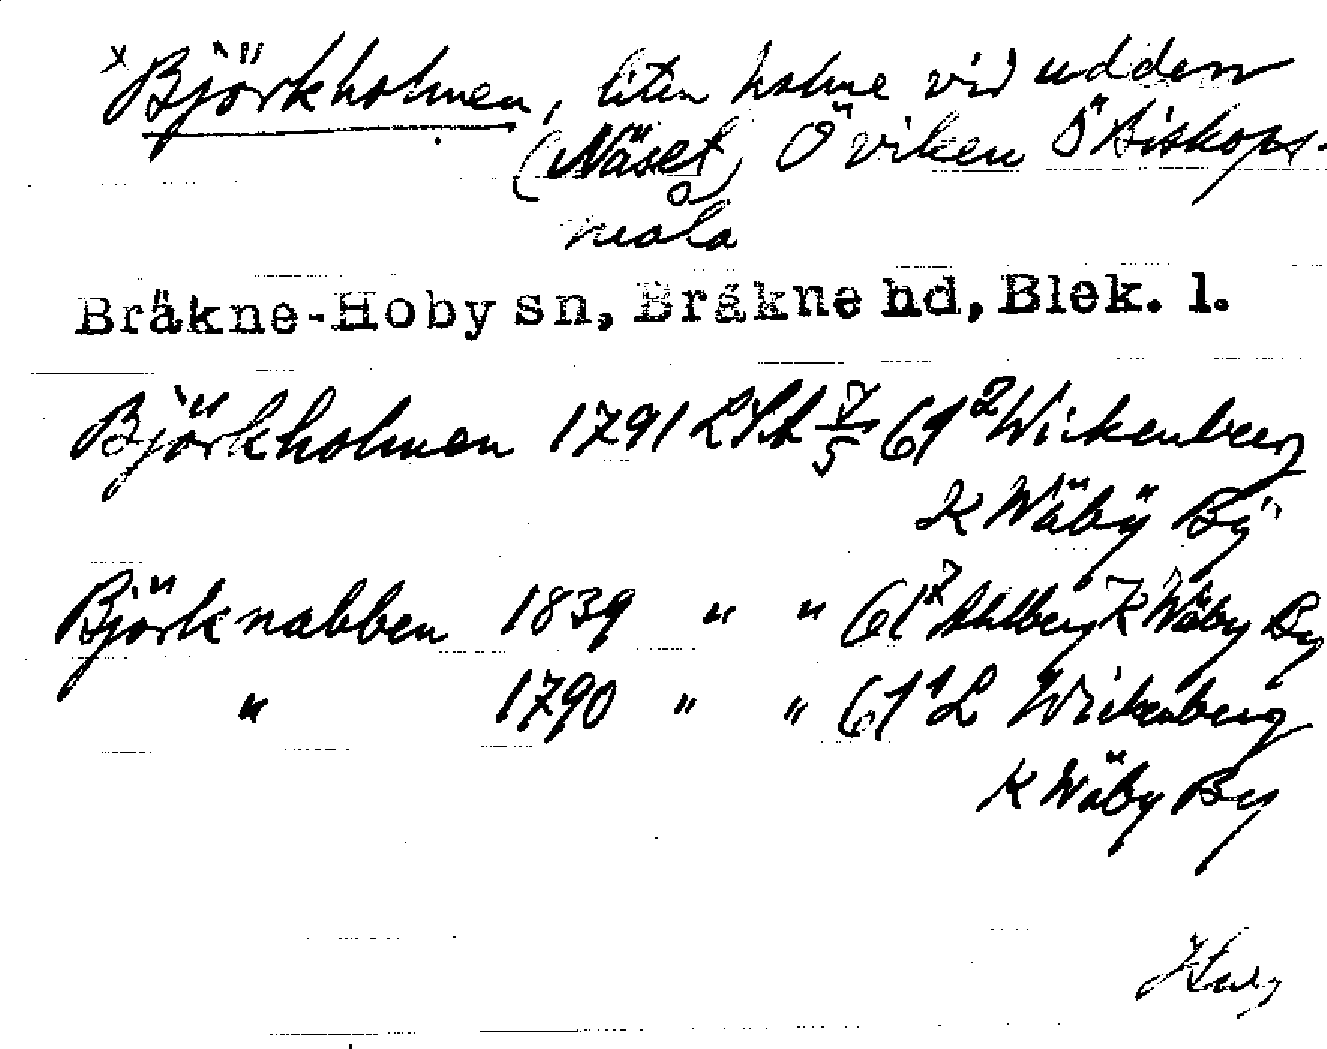 x Björkholmen, liten holme vid udden
(Näset) Ö viken Ö Biskops-
måla
Bräkne-Hoby sn, Bräkne hd, Blek. l.
Björkholmen 1791 LSA 7/5 61² Wickenberg
K Wäby By
Björknabben 1839 " " 61² Ahlberg K Wäby By
" 1790 " " 61¹ L Wickenberg
K Wäby By